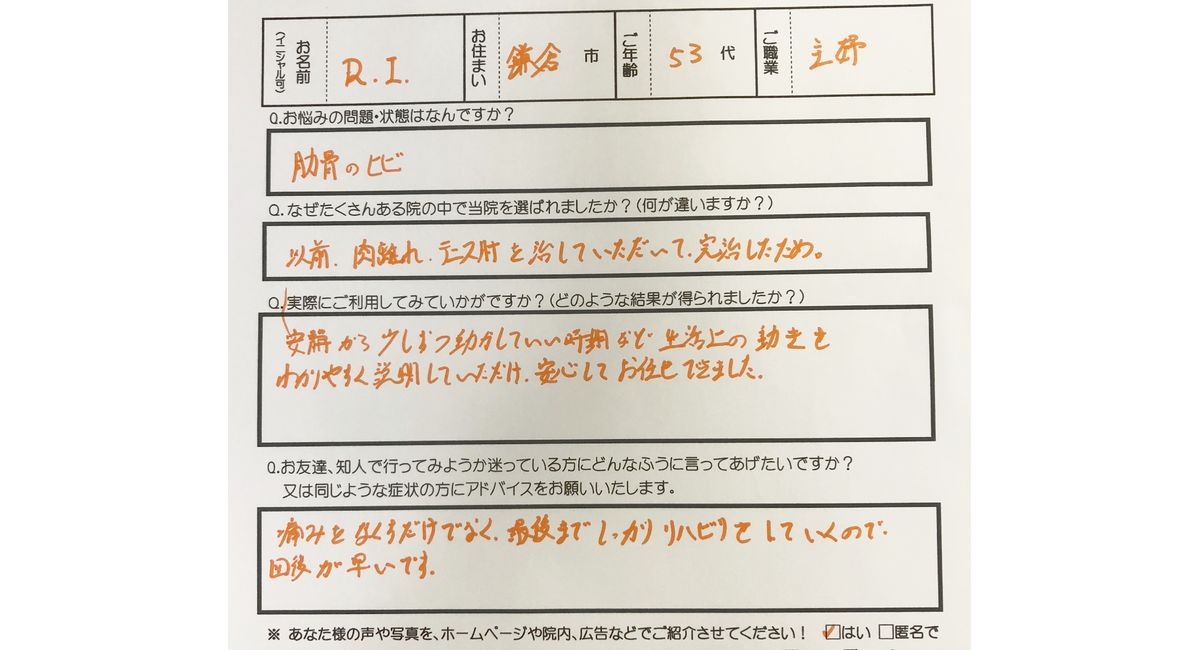 お名前(イニシャル可) R.I. お住まい 鎌倉 市 ご年齢 53 代 ご職業 主婦
Q.お悩みの問題・状態はなんですか?
肋骨のヒビ
Q.なぜたくさんある院の中で当院を選ばれましたか?(何が違いますか?)
以前、肉離れ、テニス肘を治していただいて、完治したため。
Q.実際にご利用してみていかがですか?(どのような結果が得られましたか?)
安静から少しずつ動かしていい時期など生活上の動きを
わかりやすく説明していただけ、安心してお任せできました。
Q.お友達、知人で行ってみようか迷っている方にどんなふうに言ってあげたいですか?
又は同じような症状の方にアドバイスをお願いいたします。
痛みをなくすだけでなく、最後までしっかりリハビリをしていくので、
回復が早いです。
※ あなた様の声や写真を、ホームページや院内、広告などでご紹介させてください! ☑はい □匿名で